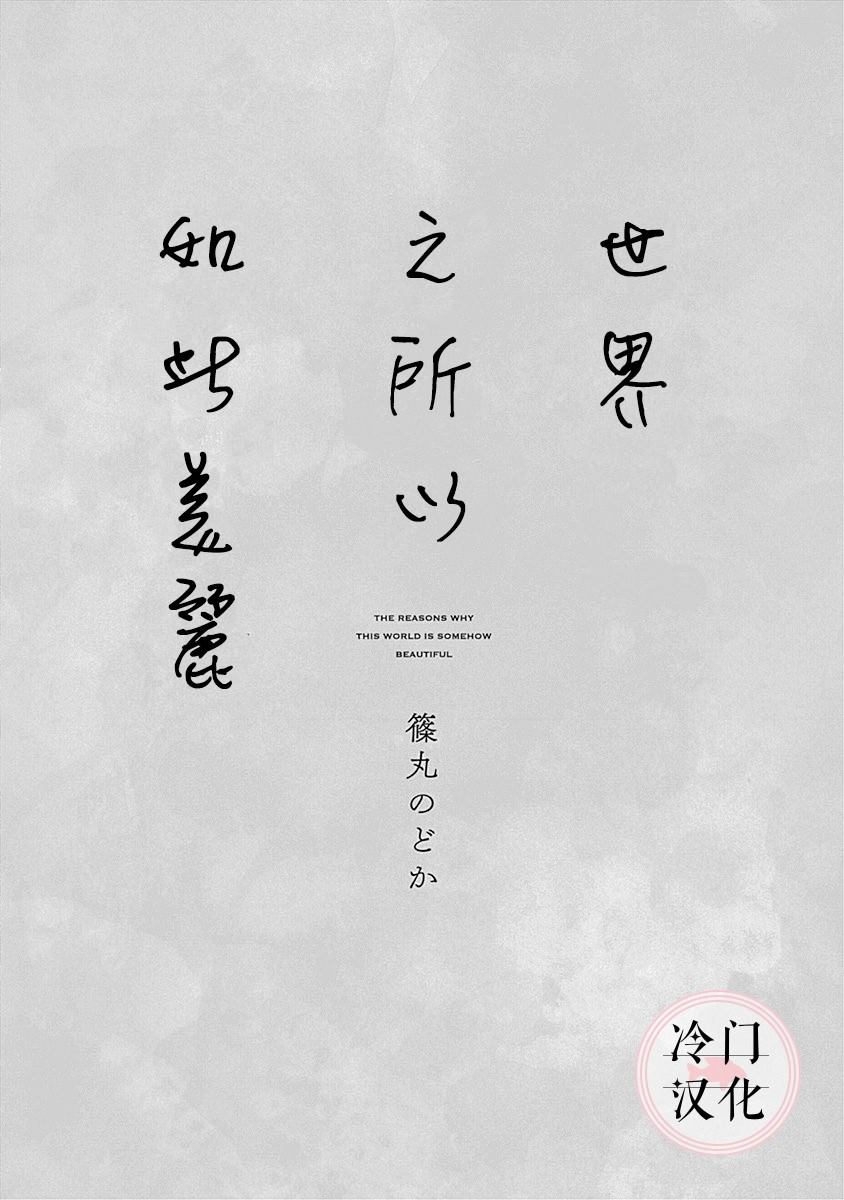 世界
之所以
如此美麗
THE REASONS WHY
THIS WORLD IS SOMEHOW
BEAUTIFUL
篠丸のどか
冷门
汉化